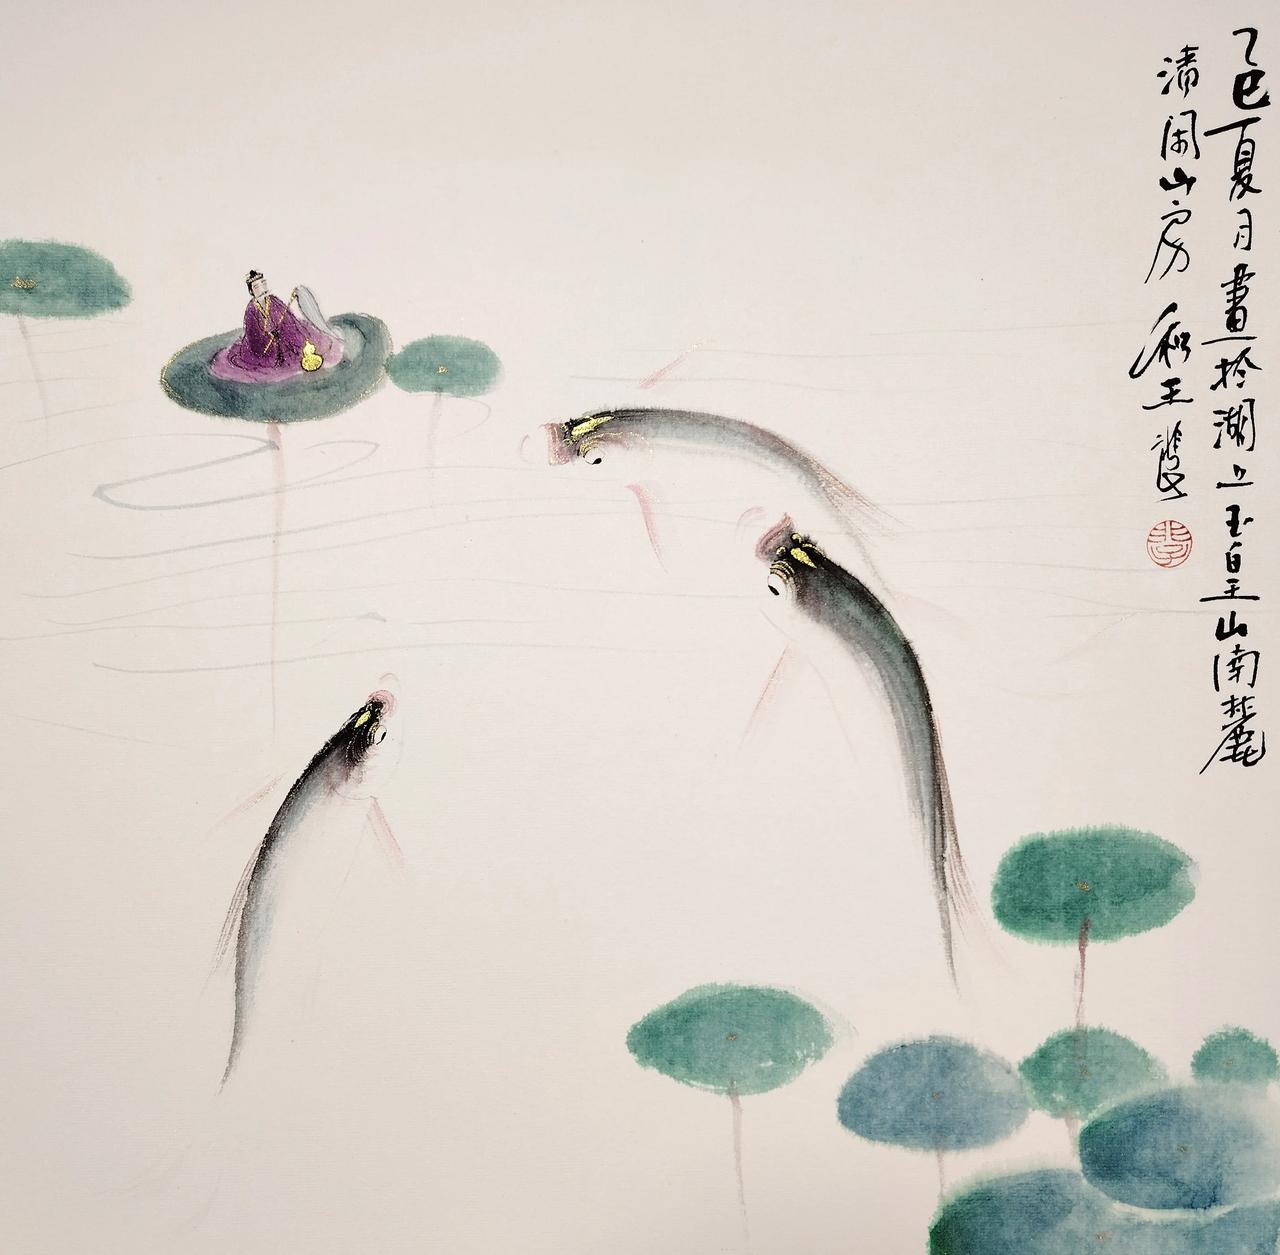 乙巳夏月畫於湖上玉皇山南麓
清閑山房 和王